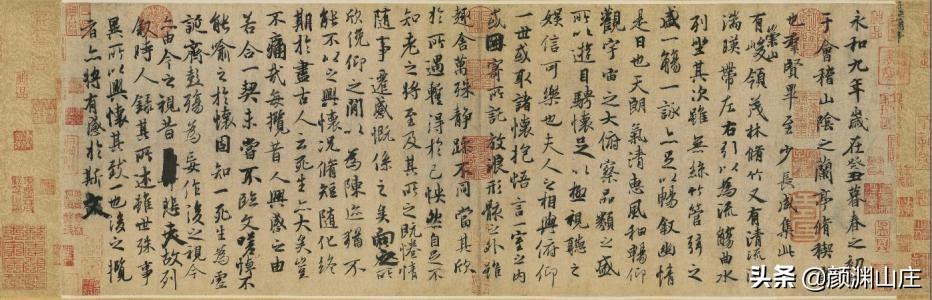 永和九年歲在癸丑暮春之初
于會稽山陰之蘭亭脩稧
也羣賢畢至少長咸集此
有崇山峻領茂林脩竹又有清流
湍暎帶左右引以為流觴曲水
列坐其次雖無絲竹管弦之
盛一觴一詠亦足以暢叙幽情
是日也天朗氣清惠風和暢仰
觀宇宙之大俯察品類之盛
所以遊目騁懷足以極視聽之
娛信可樂也夫人之相與俯仰
一世或取諸懷抱悟言一室之內
或因寄所託放浪形骸之外雖
趣舍萬殊靜躁不同當其欣
於所遇暫得於己怏然自足不
知老之將至及其所之既惓情
隨事遷感慨係之矣向之所
欣俛仰之閒以為陳迹猶不
能不以之興懷況脩短隨化終
期於盡古人云死生亦大矣豈
不痛哉每攬昔人興感之由
若合一契未嘗不臨文嗟悼不
能喻之於懷固知一死生為虛
誕齊彭殤為妄作後之視今
亦由今之視昔悲夫故列
叙時人錄其所述雖世殊事
異所以興懷其致一也後之攬
者亦將有感於斯文
头条 @颜渊山庄